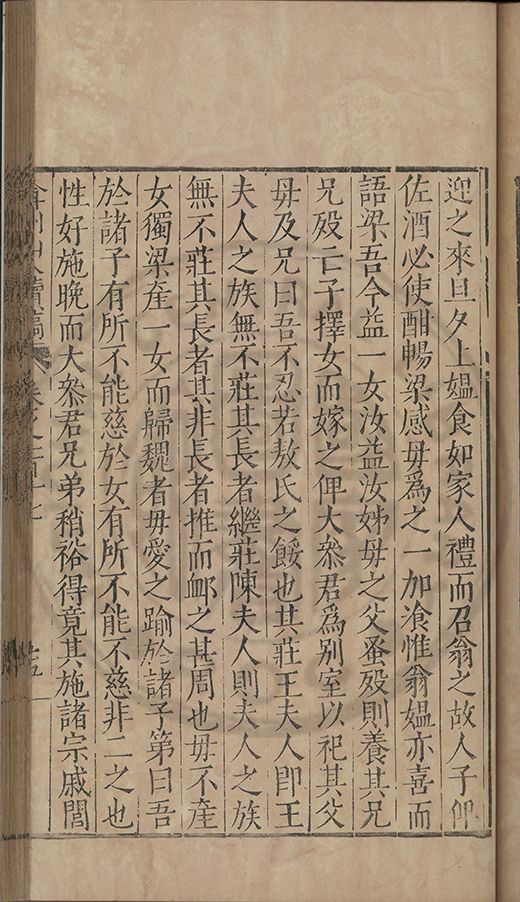 迎之來旦夕上媼食如家人禮而召翁之故人子
佐酒必使酣暢梁感毋爲之一加湌惟翁媼亦喜而
語梁吾今益一女汝益汝姊毋之父蚤歿則養其兄
兄歿亡子擇女而嫁之俾大叅君爲別室以祀其父
毋及兄曰吾不忍若敖氏之餒也其莊王夫人卽王
夫人之族無不莊其長者繼莊陳夫人則夫人之族
無不莊其長者其非長者推而䘏之甚周也毋不產
女獨梁產一女而歸魏者毋愛之踰於諸子第曰吾
於諸子有所不能慈於女有所不能不慈非二之也
性好施晚而大叅君兄弟稍裕得竟其施諸宗戚閭